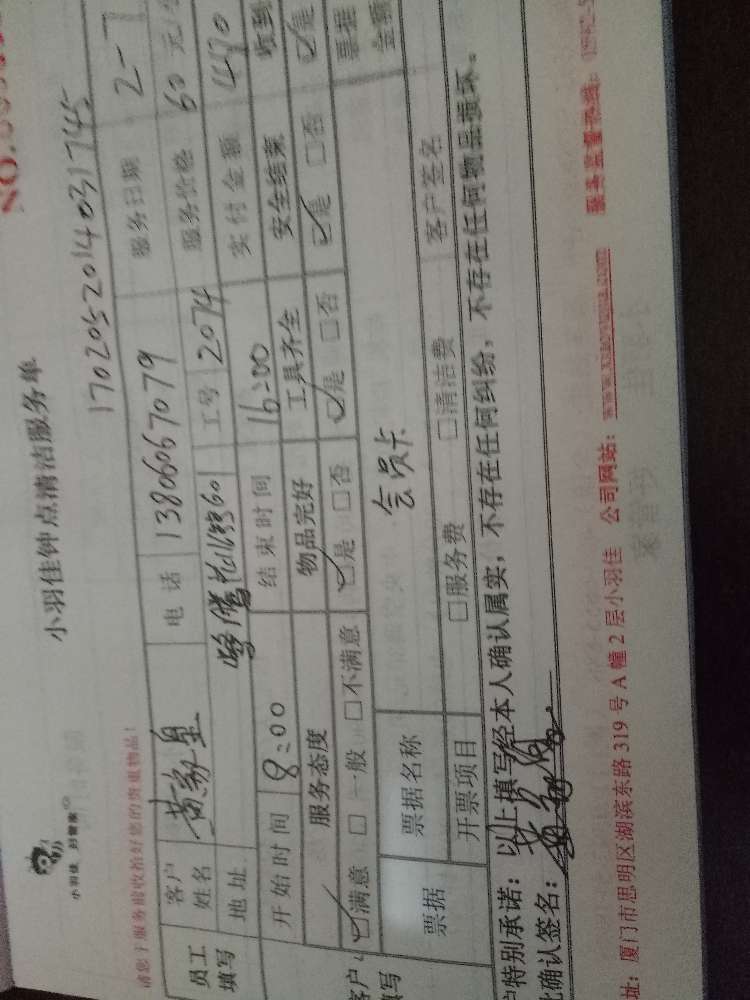 小羽佳 好管家
NO.
小羽佳钟点清洁服务单
170205201403 1745
请您于服务前收拾好您的贵重物品!
员工填写
客户姓名 电话 13806067079 服务日期 2-7
地址 工号 2074 服务价格 60元/
开始时间 8:00 结束时间 16:00 实付金额 440
服务态度 物品完好 工具齐全 安全结束 收到
☑满意 □一般 □不满意 ☑是 □否 ☑是 □否 ☑是 □否 ☑是
票据 票据名称 会员卡 票据金额
开票项目 □服务费 □清洁费 客户签名
户特别承诺:以上填写经本人确认属实,不存在任何纠纷,不存在任何物品损坏。
确认签名:
址:厦门市思明区湖滨东路319号A幢2层小羽佳 公司网站:www.xiaoyujia.com 服务监督热线: